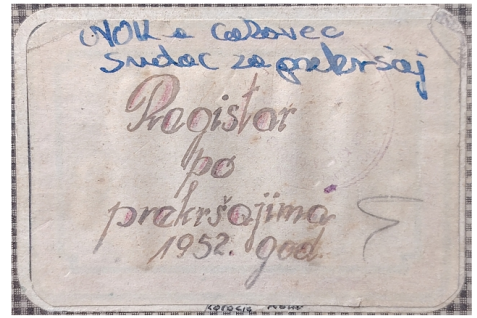 NOK-a Čakovec
Sudac za prekršaj
Registar
po
prekršajima
1952. god.